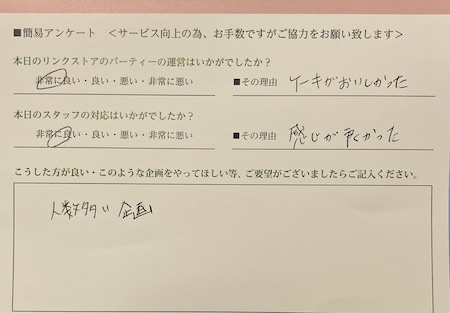 ■簡易アンケート ＜サービス向上の為、お手数ですがご協力をお願い致します＞
本日のリンクストアのパーティーの運営はいかがでしたか？
非常に良い・良い・悪い・非常に悪い ■その理由 ケーキがおいしかった
本日のスタッフの対応はいかがでしたか？
非常に良い・良い・悪い・非常に悪い ■その理由 感じが良かった
こうした方が良い・このような企画をやってほしい等、ご要望がございましたらご記入ください。
人数多い 企画